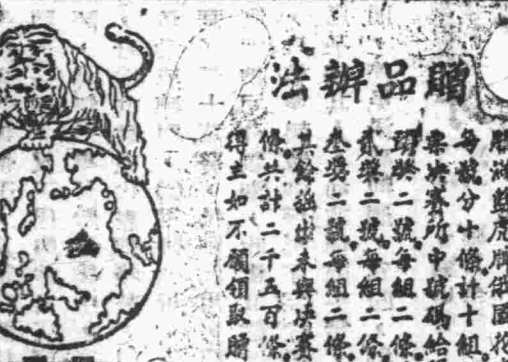 贈品辦法
虎牌國
每號分十條計十組
決賽所中號碼給
獎二號每組二條
貳獎二號每組二條
叁獎二號每組二條
其餘出未與決賽
條共計二千五百條
得主如不願領取贈